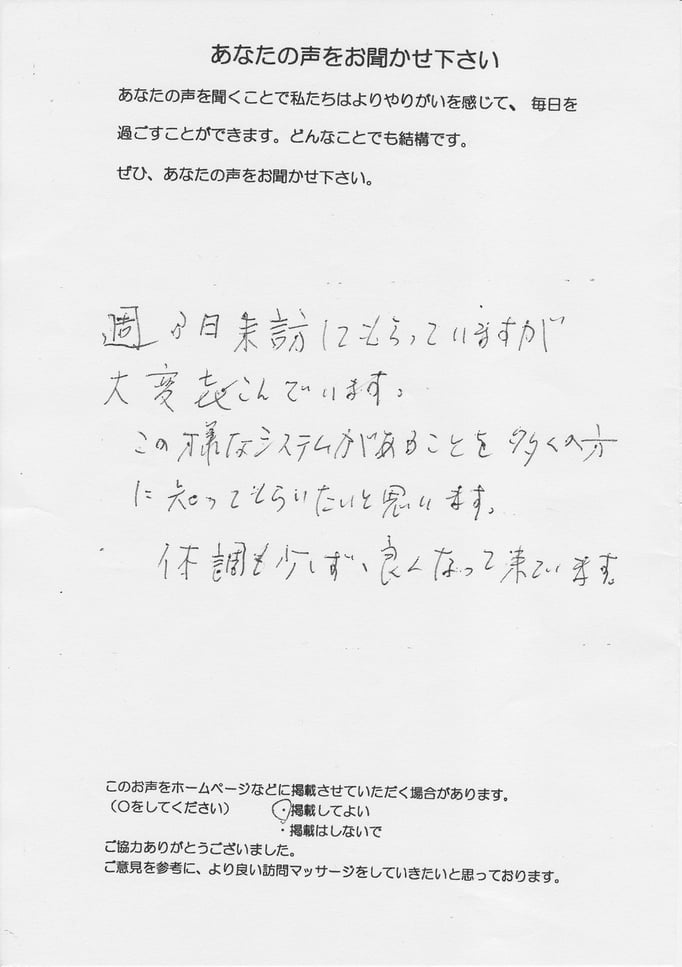 あなたの声をお聞かせ下さい
あなたの声を聞くことで私たちはよりやりがいを感じて、毎日を
過ごすことができます。どんなことでも結構です。
ぜひ、あなたの声をお聞かせ下さい。
週 日来訪してもらっていますが
大変喜こんでいます。
この様なシステムがあることを多くの方
に知ってもらいたいと思います。
体調も少しずつ良くなって来ています。
このお声をホームページなどに掲載させていただく場合があります。
(〇をしてください) ・掲載してよい
・掲載はしないで
ご協力ありがとうございました。
ご意見を参考に、より良い訪問マッサージをしていきたいと思っております。